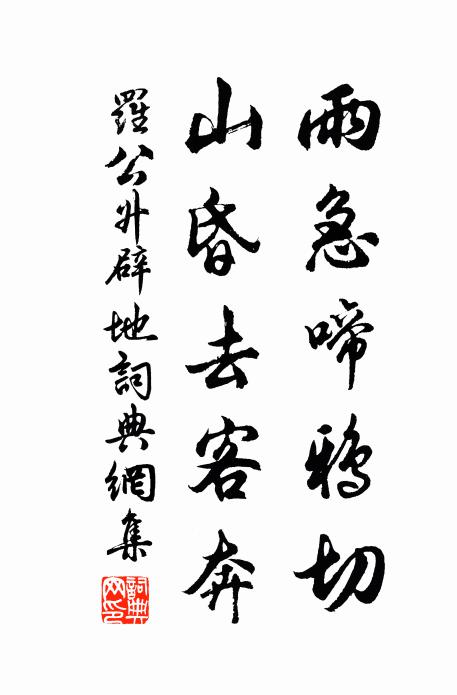 雨急啼鴉切
山昏去客奔
羅公升辟地詞典網集
詞典網印